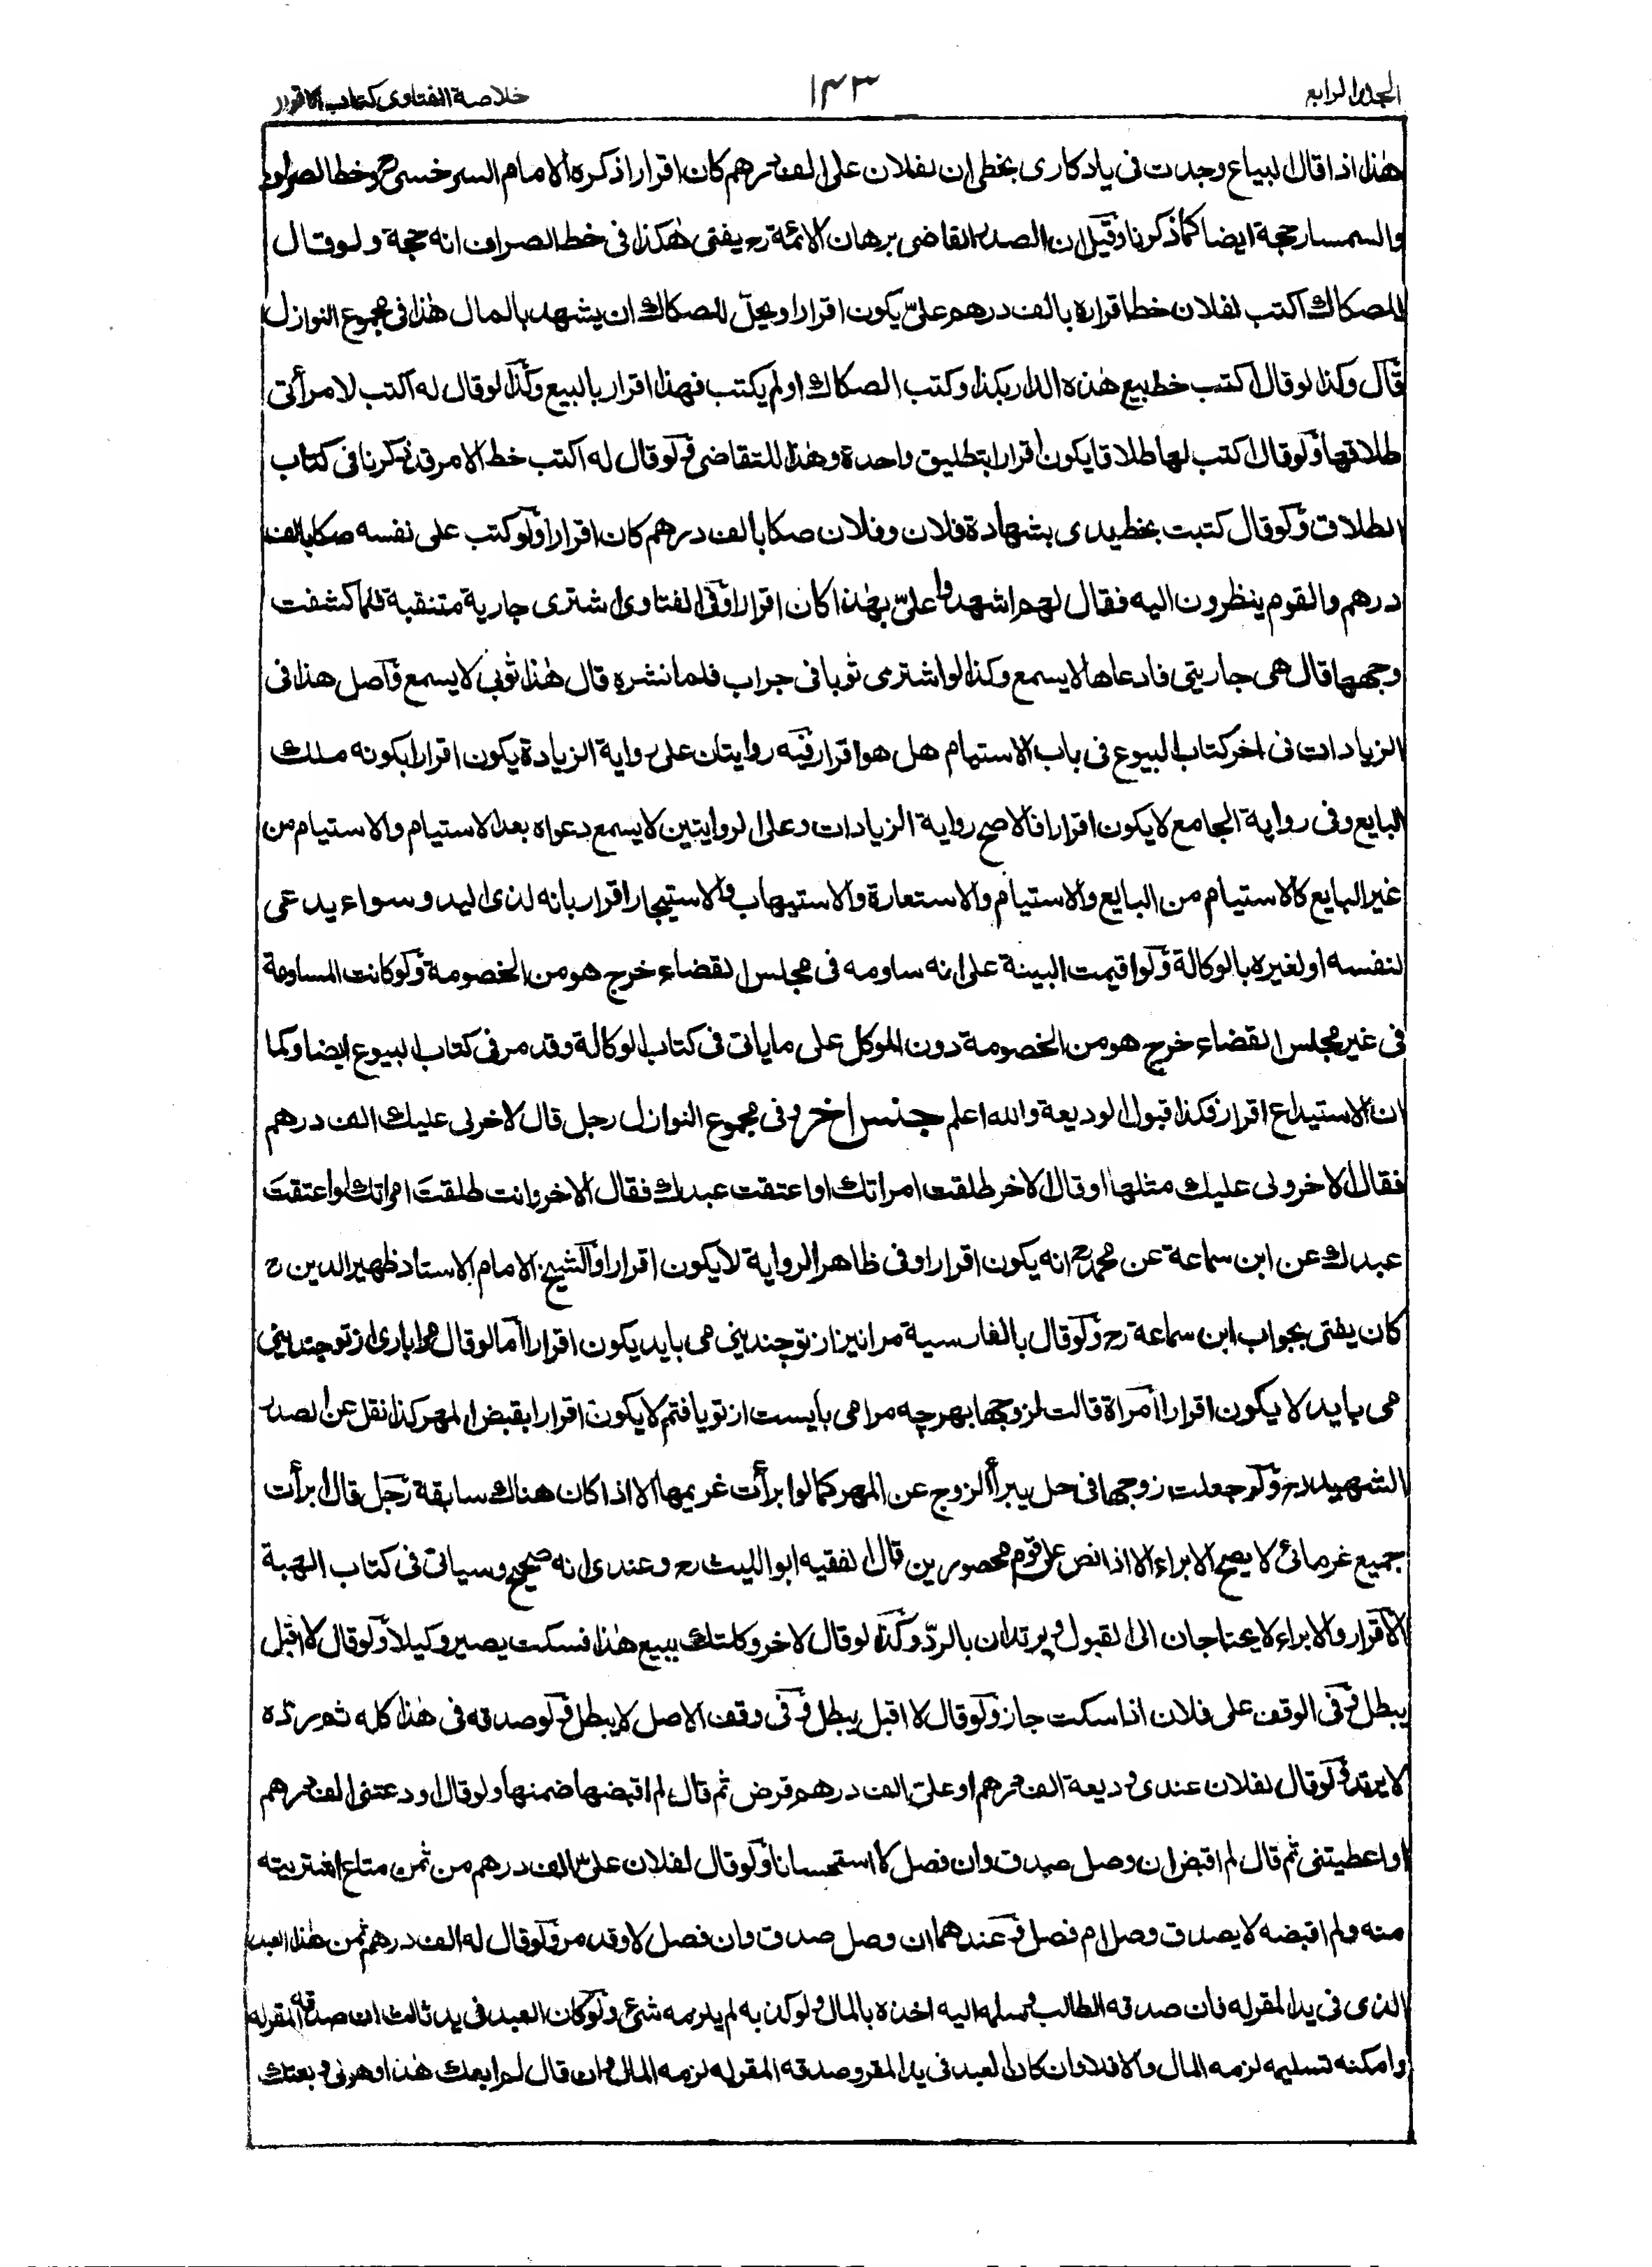 الجلد الرابع ١٤٣ خلاصة الفتاوى كتاب الاقرار
هٰذا اذا قال البياع وجدت فى يادكارى بخطى ان لفلان علىّ الف درهم كان اقرارا ذكره الامام السرخسىؒ وخط الصراف
والسمسار حجة ايضا كما ذكرنا وقيل ان الصدر القاضى برهان الائمة رح يفتى هٰكذا فى خط الصراف انه حجة ولو قال
للصكاك اكتب لفلان خط اقراره بالف درهم علىّ يكون اقرارا ويحلّ للصكاك ان يشهد بالمال هٰذا فى مجموع النوازل
قال وكذا لو قال اكتب خط بيع هٰذه الدار بكذا وكتب الصكاك اولم يكتب فهذا اقرار بالبيع وكذا لو قال له اكتب لامرأتى
طلاقها ولو قال اكتب لها طلاقا يكون اقرارا بتطليق واحدة وهٰذا للتقاضى ولو قال له اكتب خط الامر قد ذكرنا فى كتاب
الطلاق ولو قال كتبت بخط يدى بشهادة فلان وفلان صكا بالف درهم كان اقرارا ولو كتب على نفسه صكا بالف
درهم والقوم ينظرون اليه فقال لهم اشهدوا علىّ بهٰذا كان اقرارا وفى الفتاوى اشترى جارية متنقبة فلما كشفت
وجهها قال هى جاريتى فادعاها لا يسمع وكذا لو اشترى ثوبا فى جراب فلما نشره قال هٰذا ثوبى لا يسمع واصل هذا فى
الزيادات فى اخر كتاب البيوع فى باب الاستيام هل هو اقرار فيه روايتان على رواية الزيادة يكون اقرارا بكونه ملك
البايع وفى رواية الجامع لا يكون اقرارا فالاصح رواية الزيادات وعلى الروايتين لا يسمع دعواه بعد الاستيام والاستيام من
غير البايع كالاستيام من البايع والاستيام والاستعارة والاستيهاب والاستيجار اقرار بانه لذى اليد وسواء يدعى
لنفسه او لغيره بالوكالة ولو اقيمت البينة على انه ساومه فى مجلس القضاء خرج هو من الخصومة ولو كانت المساومة
فى غير مجلس القضاء خرج هو من الخصومة دون الموكل على ما ياتى فى كتاب الوكالة وقد مر فى كتاب البيوع ايضا وكما
ان الاستيداع اقرار فكذا قبول الوديعة والله اعلم جنس اخر وفى مجموع النوازل رجل قال لاخر لى عليك الف درهم
فقال الاخر ولى عليك مثلها او قال لاخر طلقت امراتك او اعتقت عبدك فقال الاخر وانت طلقتَ امراتك او اعتقتَ
عبدك عن ابن سماعة عن محمدؒ انه يكون اقرارا وفى ظاهر الرواية لا يكون اقرارا والشيخ الامام الاستاد ظهير الدين رح
كان يفتى بجواب ابن سماعة رح ولو قال بالفارسية مرا نيز از تو چندينى مى بايد يكون اقرارا اما لو قال مرا بارى از تو چندينى
مى بايد لا يكون اقرارا امراة قالت لزوجها بهرچه مرا مى بايست از تو يافتم لا يكون اقرارا بقبض المهر كذا نقل عن الصدر
الشهيد رح ولو جعلت زوجها فى حل يبرأ الزوج عن المهر كما لو ابرأت غريمها الا اذا كان هناك سابقة رجل قال ابرأت
جميع غرمائى لا يصح الابراء الا اذا نص على قوم محصورين قال الفقيه ابو الليث رح وعندى انه صحيح وسياتى فى كتاب الهبة
الاقرار والابراء لا يحتاجان الى القبول ويرتدان بالردّ وكذا لو قال لاخر وكلتك ببيع هٰذا فسكت يصير وكيلا ولو قال لا اقبل
يبطل وفى الوقف على فلان اذا سكت جاز ولو قال لا اقبل يبطل وفى وقف الاصل لا يبطل ولو صدقه فى هٰذا كله ثم رده
لا يرتد ولو قال لفلان عندى وديعة الف درهم او علىّ الف درهم قرض ثم قال لم اقبضها ضمنها ولو قال اودعتنى الف درهم
او اعطيتنى ثم قال لم اقبض ان وصل صدق وان فصل لا استحسانا ولو قال لفلان علىّ الف درهم من ثمن متاع اشتريته
منه ولم اقبضه لا يصدق وصل ام فصل وعندهما ان وصل صدق وان فصل لا وقد مر ولو قال له الف درهم ثمن هٰذا العبد
الذى فى يد المقر له فان صدقه الطالب وسلمه اليه اخذه بالمال ولو كذبه لم يلزمه شئ ولو كان العبد فى يد ثالث ان صدقه المقر له
وامكنه تسليمه لزمه المال والا فلا وان كان العبد فى يد المقر وصدقه المقر له لزمه المال وان قال لم ابعك هٰذا وهو لى وبعتك